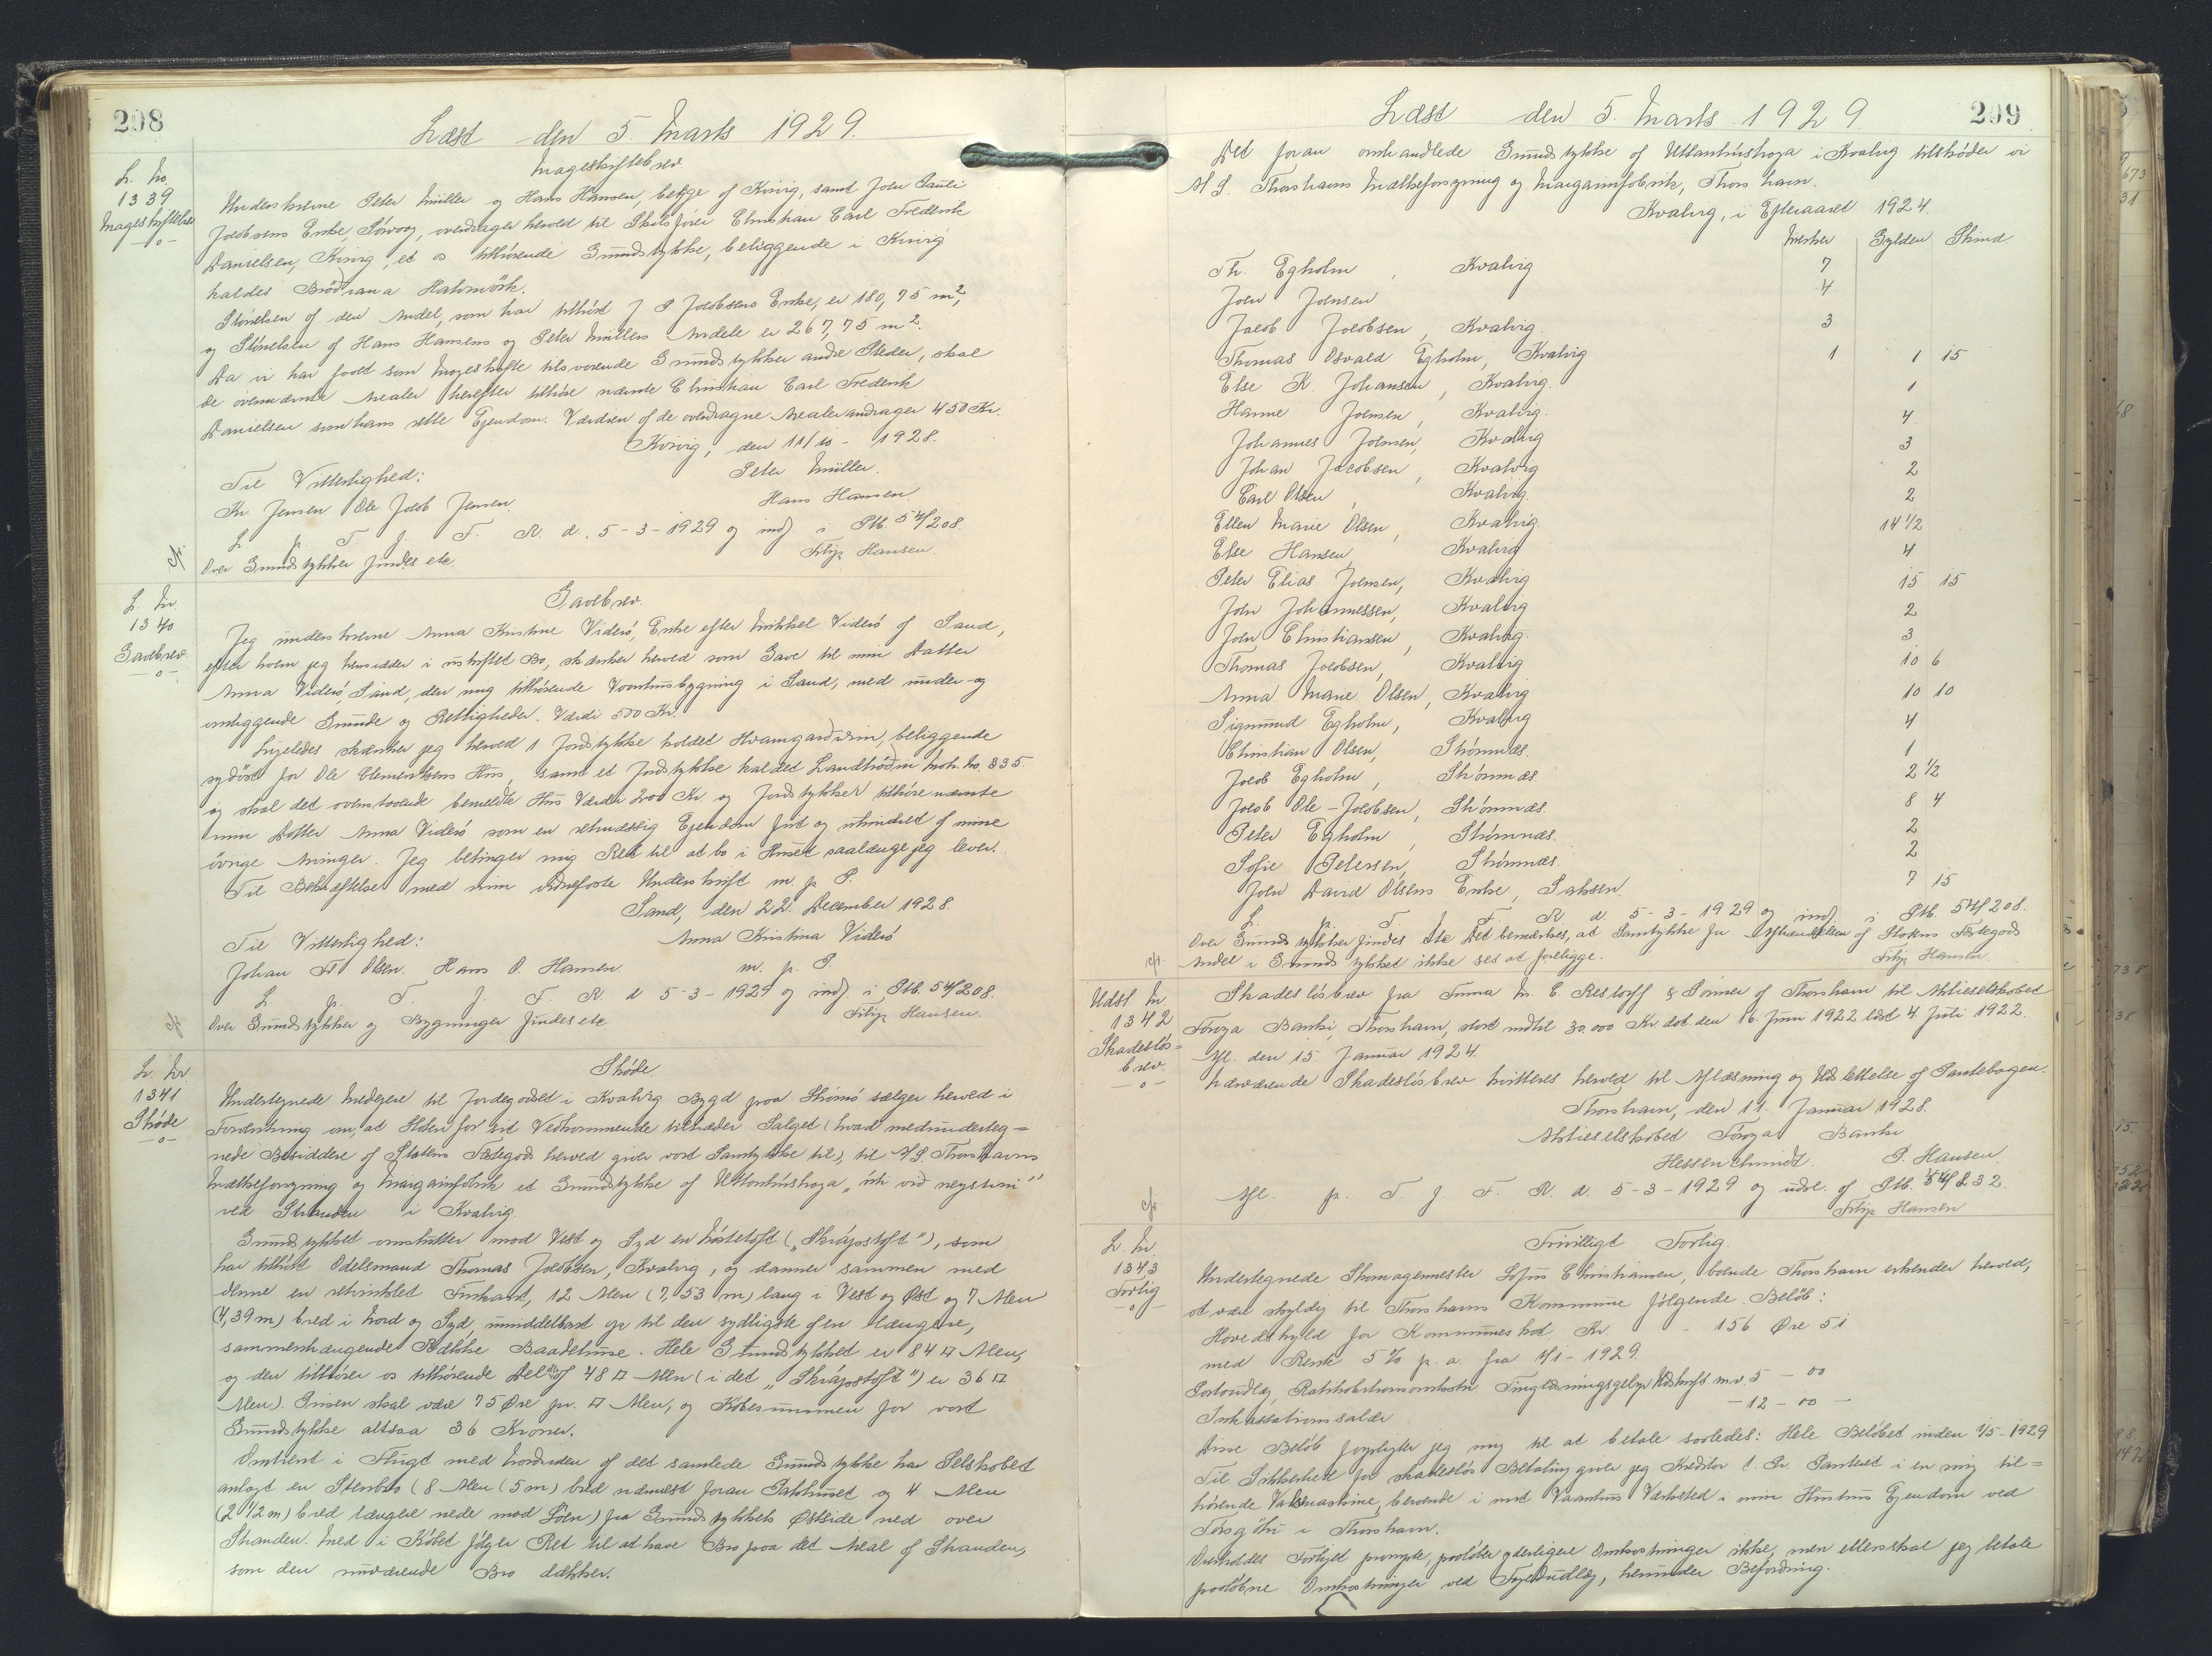 208
Læst den 5. Marts 1929.
L. No.
1339
Mageskiftebrev
-o-
Mageskiftebrev
Underskrevne Peter Müller og Hans Hansen, begge af Kvivig, samt Joen Pauli
Joensens Enke, Sørvaag, overdrager herved til Skibsfører Christian Carl Frederik
Danielsen, Kvivig, et os tilhørende Grundstykke, beliggende i Kvivig
kaldes Brødrana Hakavørk.
Størrelsen af den Andel, som har tilhørt J P Jacobsens Enke, er 180,75 m²,
og Størrelsen af Hans Hansens og Peter Müllers Andele er 267,75 m².
Da vi har faaet som Mageskifte tilsvarende Grundstykker andre Steder, skal
de ovennævnte Arealer herefter tilhøre nævnte Christian Carl Frederik
Danielsen som hans rette Ejendom. Værdien af de overdragne Arealer andrager 450 Kr.
Kvivig, den 11/10 - 1928.
Til Vitterlighed: Peter Müller.
Kr. Jensen Ole Jacob Jensen. Hans Hansen.
L. p. T. f. F. R. d. 5-3-1929 og indf. i Ptb. 54/208.
Over Grundstykker findes ete. Filip Hansen.
L. Nr.
1340
Gavebrev
-o-
Gavebrev.
Jeg underskrevne Anna Kristine Viderø, Enke efter Mikkel Viderø af Sand,
efter hvem jeg hensidder i uskiftet Bo, skænker herved som Gave til min Datter
Anna Viderø, Sand, den mig tilhørende Vaanhusbygning i Sand, med under- og
omliggende Grunde og Rettigheder. Værdi 500 Kr.
Ligeledes skænker jeg herved 1 Jordstykke kaldet Hvamgardurin, beliggende
sydøst for Ole Clementsens Hus, samt et Jordstykke kaldet Landtrøðin matr. No. 335
og skal det ovenstaaende bemeldte Hus Værdi 200 Kr. og Jordstykker tilhøre nævnte
min Datter Anna Viderø som en retmæssig Ejendom frit og uhindret af mine
øvrige Arvinger. Jeg betinger mig Ret til at bo i Huset saalænge jeg lever.
Til Bekræftelse med min vidnefaste Underskrift m. p. P.
Sand, den 22. December 1928.
Til Vitterlighed: Anna Kristina Viderø
Johan Fr Olsen. Hans O. Hansen. m. p. P.
L. p. T. f. F. R. d 5-3-1929 og indf. i Ptb. 54/208.
Over Grundstykker og Bygninger findes ete. Filip Hansen.
L. Nr
1341
Skøde
-o-
Skøde
Undertegnede Medejere til Jordegodset i Kvalvig Bygd paa Strømø sælger herved i
Forventning om, at Staten for sit Vedkommende tiltræder Salget (hvad medunderteg-
nede Besiddere af Statens Fæstegods herved giver vort Samtykke til), til A/S Thorshavns
Mælkeforsyning og Margarinfabrik et Grundstykke af Uttanhúshaga „úti við neystini"
ved Stranden i Kvalvig.
Grundstykket omslutter mod Vest og Syd en Nøstetoft („Skrápstoft"), som
har tilhørt Odelsmand Thomas Jacobsen, Kvalvig, og danner sammen med
denne en retvinklet Firkant, 12 Alen (7,53 m) lang i Vest og Øst og 7 Alen
(4,39 m) bred i Nord og Syd, umiddelbart op til den sydligste af en længere,
sammenhængende Række Baadehuse. Hele Grundstykket er 84 □ Alen,
og den tilhører os tilhørende Del deraf 48 □ Alen (i det „Skrápstoft") er 36 □
Alen). Prisen skal være 75 Øre pr. □ Alen, og Købesummen for vort
Grundstykke altsaa 36 Kroner.
Omtrent i Flugt med Nordsiden af det samlede Grundstykke har Selskabet
anlagt en Stenbro (8 Alen (5 m) bred nærmest foran Pakhuset og 4 Alen
(2 1/2 m) bred længere nede mod Søen) fra Grundstykkets Østside ned over
Stranden. Med i Købet følger Ret til at have Bro paa det Areal af Stranden,
som den nuværende Bro dækker.
209
Læst den 5. Marts 1929
Det foran omhandlede Grundstykke af Uttanhúshaga i Kvalvig tilskøder vi
A/S. Thorshavns Mælkeforsyning og Margarinfabrik, Thorshavn.
Kvalvig, i Efteraaret 1924.
Merker Gylden Skind
Th. Egholm, Kvalvig 7
Joen Joensen 4
Jacob Jacobsen, Kvalvig. 3
Thomas Osvald Egholm, Kvalvig 1 1 15
Else K. Johansen, Kvalvig. 1
Hanne Joensen, Kvalvig. 4
Johannes Joensen, Kvalvig 3
Johan Jacobsen, Kvalvig 2
Carl Olsen, Kvalvig. 2
Ellen Marie Olsen, Kvalvig. 14 1/2
Else Hansen, Kvalvig 4
Peter Elias Joensen, Kvalvig 15 15
Joen Johannessen, Kvalvig 2
Joen Christiansen, Kvalvig. 3
Thomas Jacobsen, Kvalvig 10 6
Anna Marie Olsen, Kvalvig 10 10
Sigmund Egholm, Kvalvig 4
Christian Olsen, Strømnæs. 1
Jacob Egholm, Strømnæs. 2 1/2
Jacob Ole-Jacobsen, Strømnæs. 8 4
Peter Egholm, Strømnæs. 2
Sofie Petersen, Strømnæs. 2
Joen David Olsens Enke, Saksen. 7 15
L. p. T. f. F. R. d. 5-3-1929 og indf. i Ptb. 54/208.
Over Grundstykker findes ete Det bemærkes, at Samtykke for Afhændelsen af Statens Fæstegods
Andel i Grundstykket ikke ses at foreligge. Filip Hansen.
Udsl. Nr.
1342
Skadesløs=
brev.
-o-
Skadesløsbrev fra Firma M. C. Restorff & Sønner af Thorshavn til Aktieselskabet
Føroya Banki, Thorshavn, stort indtil 30.000 Kr dat. den 16. Juni 1922 læst 4. Juli 1922.
Afl. den 15. Januar 1924.
Nærværende Skadesløsbrev kvitteres herved til Aflæsning og Udslettelse af Pantebogen.
Thorshavn, den 11. Januar 1928.
Aktieselskabet Føroya Banki
Hessenschmidt. P. Hansen.
Afl. p. T. f. F. R. d. 5-3-1929 og udsl. af Ptb. 44/232.
Filip Hansen
L. Nr.
1343
Forlig
-o-
Frivilligt Forlig.
Undertegnede Skomagermester Sofus Christiansen, boende Thorshavn erkender herved,
at være skyldig til Thorshavns Kommune følgende Beløb:
Hovedskyld for Kommuneskat Kr. - 156 Øre 51
med Rente 5% p. a. fra 1/1-1929.
Portoudlæg, Ratihabitionsomkostn. Tinglæsningsgebyr Udskrift. m.v. 5 - 00
Inkassationssalær - 12 - 00 -
Disse Beløb forpligter jeg mig til at betale saaledes: Hele Beløbet inden 1/5-1929
Til Sikkerhed for skadesløs Betaling giver jeg Kreditor 1. Pr. Panteret i en mig til=
hørende Valsemaskine, beroende i mit Vaanhus Værksted i min Hustrus Ejendom ved
Tórsgøtu i Thorshavn.
Overholdes Forliget prompte, paaløber yderligere Omkostninger ikke, men ellers skal jeg betale
paaløbne Omkostninger ved Fogedudlæg, herunder Befordring.